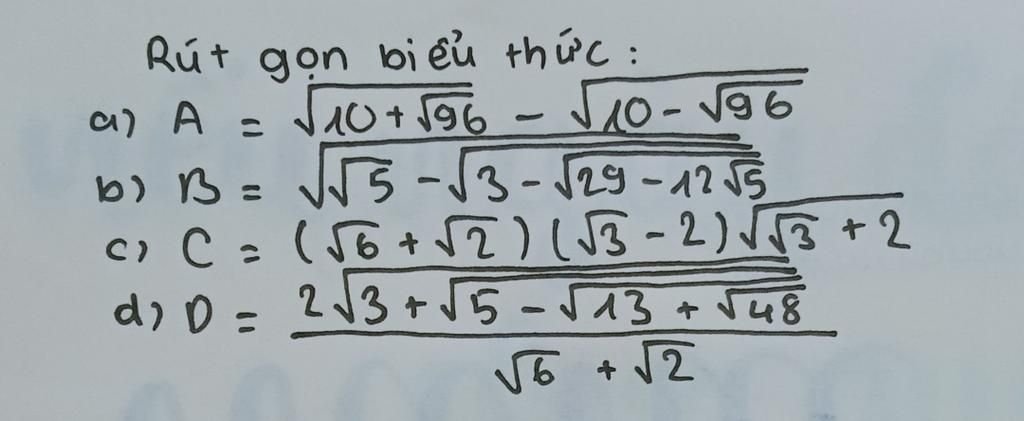 Rút gọn biểu thức:
a) A = √(10 + √96) - √(10 - √96)
b) B = √(√5 - √(3 - √(29 - 12√5)))
c) C = (√6 + √2)(√3 - 2)√(√3 + 2)
d) D = (2√(3 + √(5 - √(13 + √48))))/(√6 + √2)